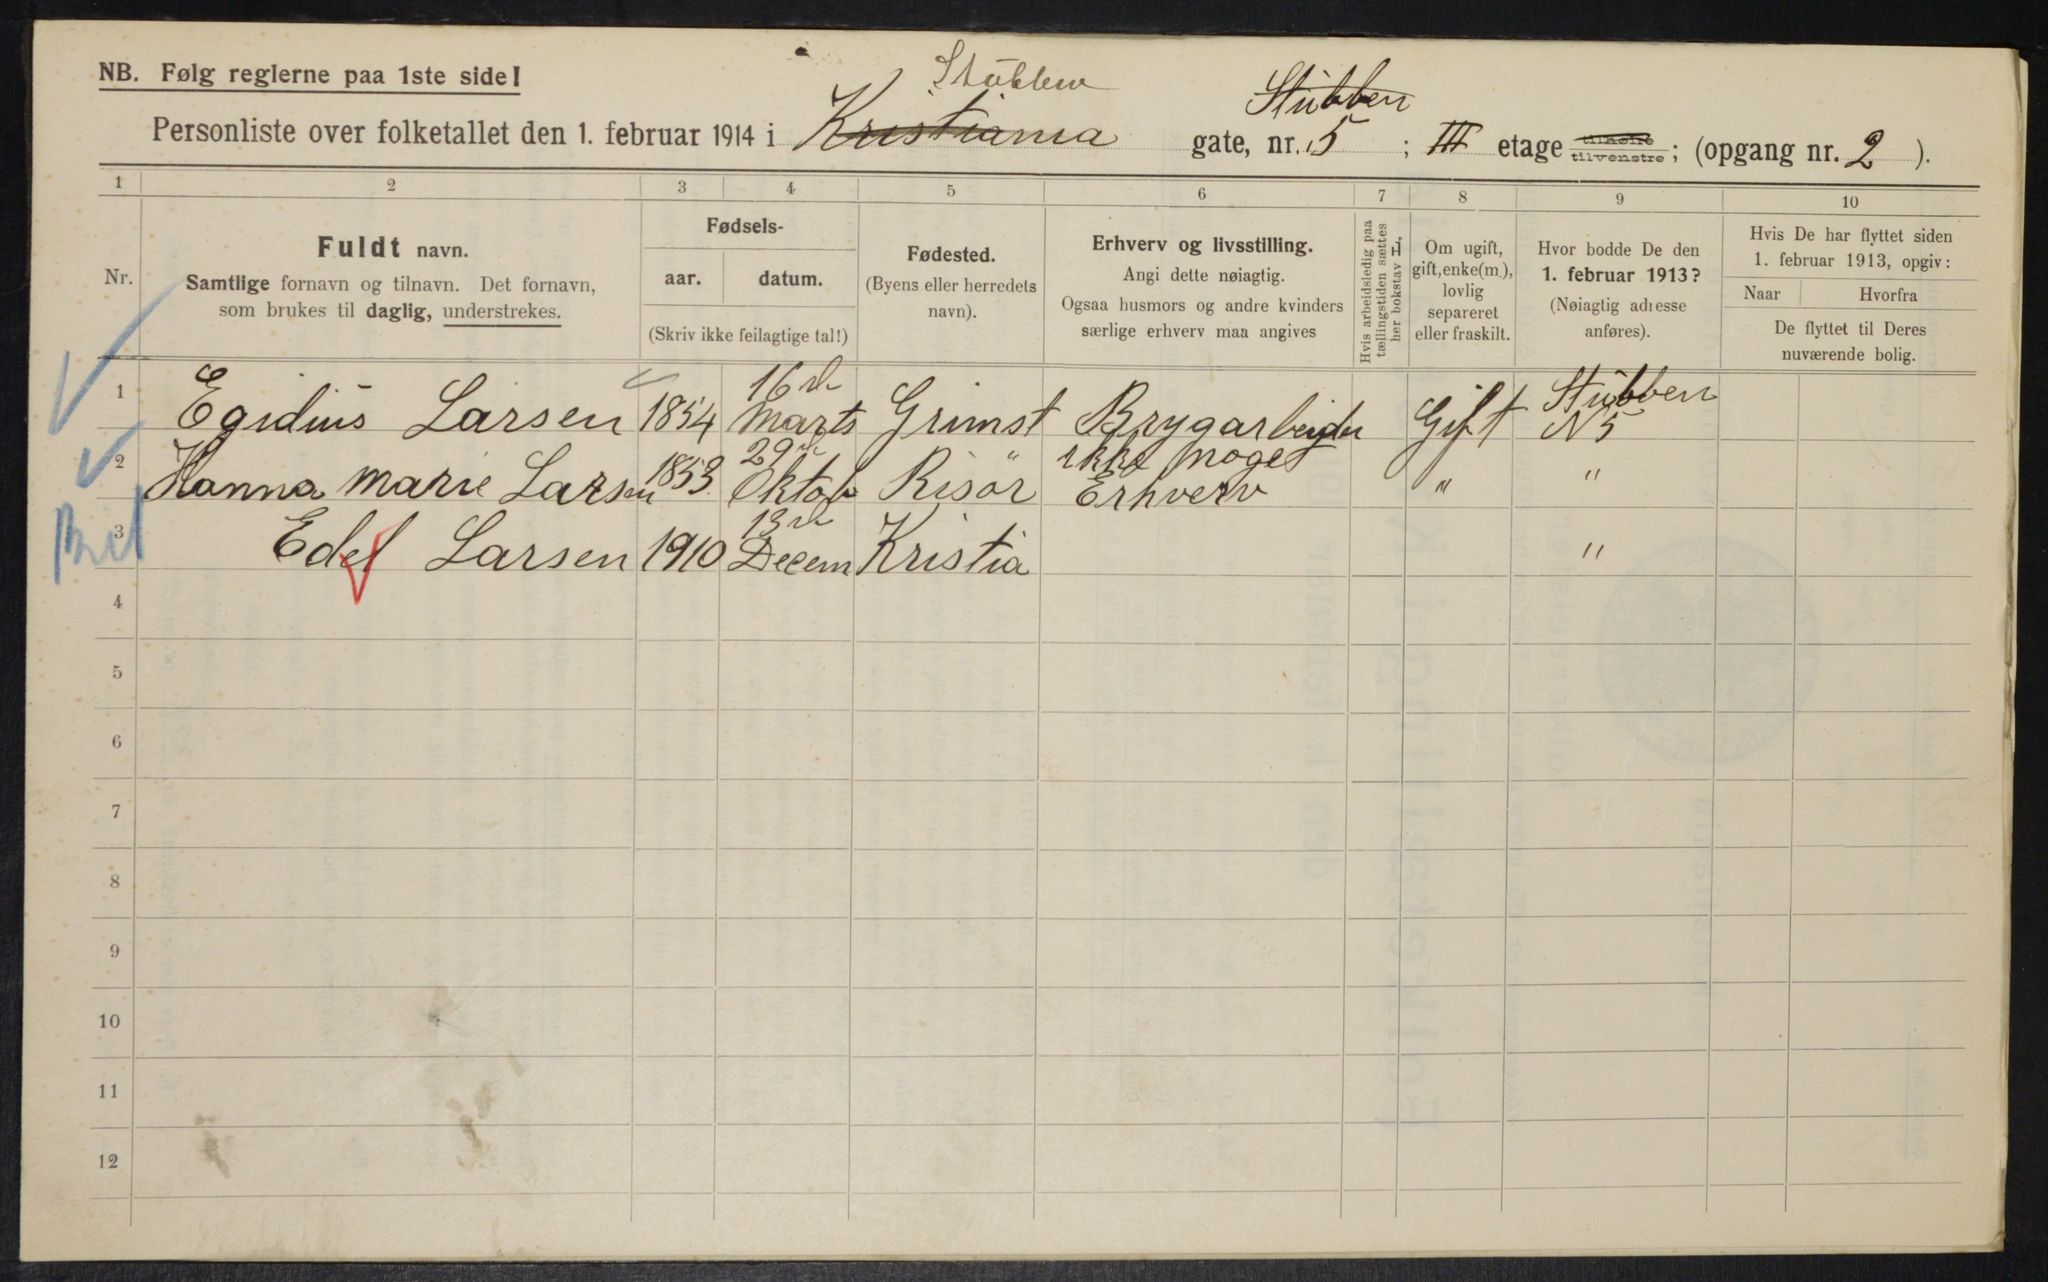 NB. Følg reglerne paa 1ste side!
Stubben
Stubben
Personliste over folketallet den 1. februar 1914 i Kristiania gate, nr. 5 ; III etage tilhøire tilvenstre ; (opgang nr. 2 ).
1 2 3 4 5 6 7 8 9 10
Nr.
Fuldt navn.
Samtlige fornavn og tilnavn. Det fornavn,
som brukes til daglig, understrekes.
Fødsels-
aar. datum.
(Skriv ikke feilagtige tal!)
Fødested.
(Byens eller herredets
navn).
Erhverv og livsstilling.
Angi dette nøiagtig.
Ogsaa husmors og andre kvinders
særlige erhverv maa angives
Hvis arbeidsledig paa
tællingstiden sættes
her bokstav L.
Om ugift,
gift, enke(m.),
lovlig
separeret
eller fraskilt.
Hvor bodde De den
1. februar 1913?
(Nøiagtig adresse
anføres).
Hvis De har flyttet siden
1. februar 1913, opgiv:
Naar Hvorfra
De flyttet til Deres
nuværende bolig.
1 Egidius Larsen 1854 16de Marts Grimst Brygarbeider Gift Stubben N 5
2 Hanna Marie Larsen 1853 29 Oktob Risör ikke noget Erhverv " "
3 Edel Larsen 1910 13de Decem Kristia "
4
5
6
7
8
9
10
11
12